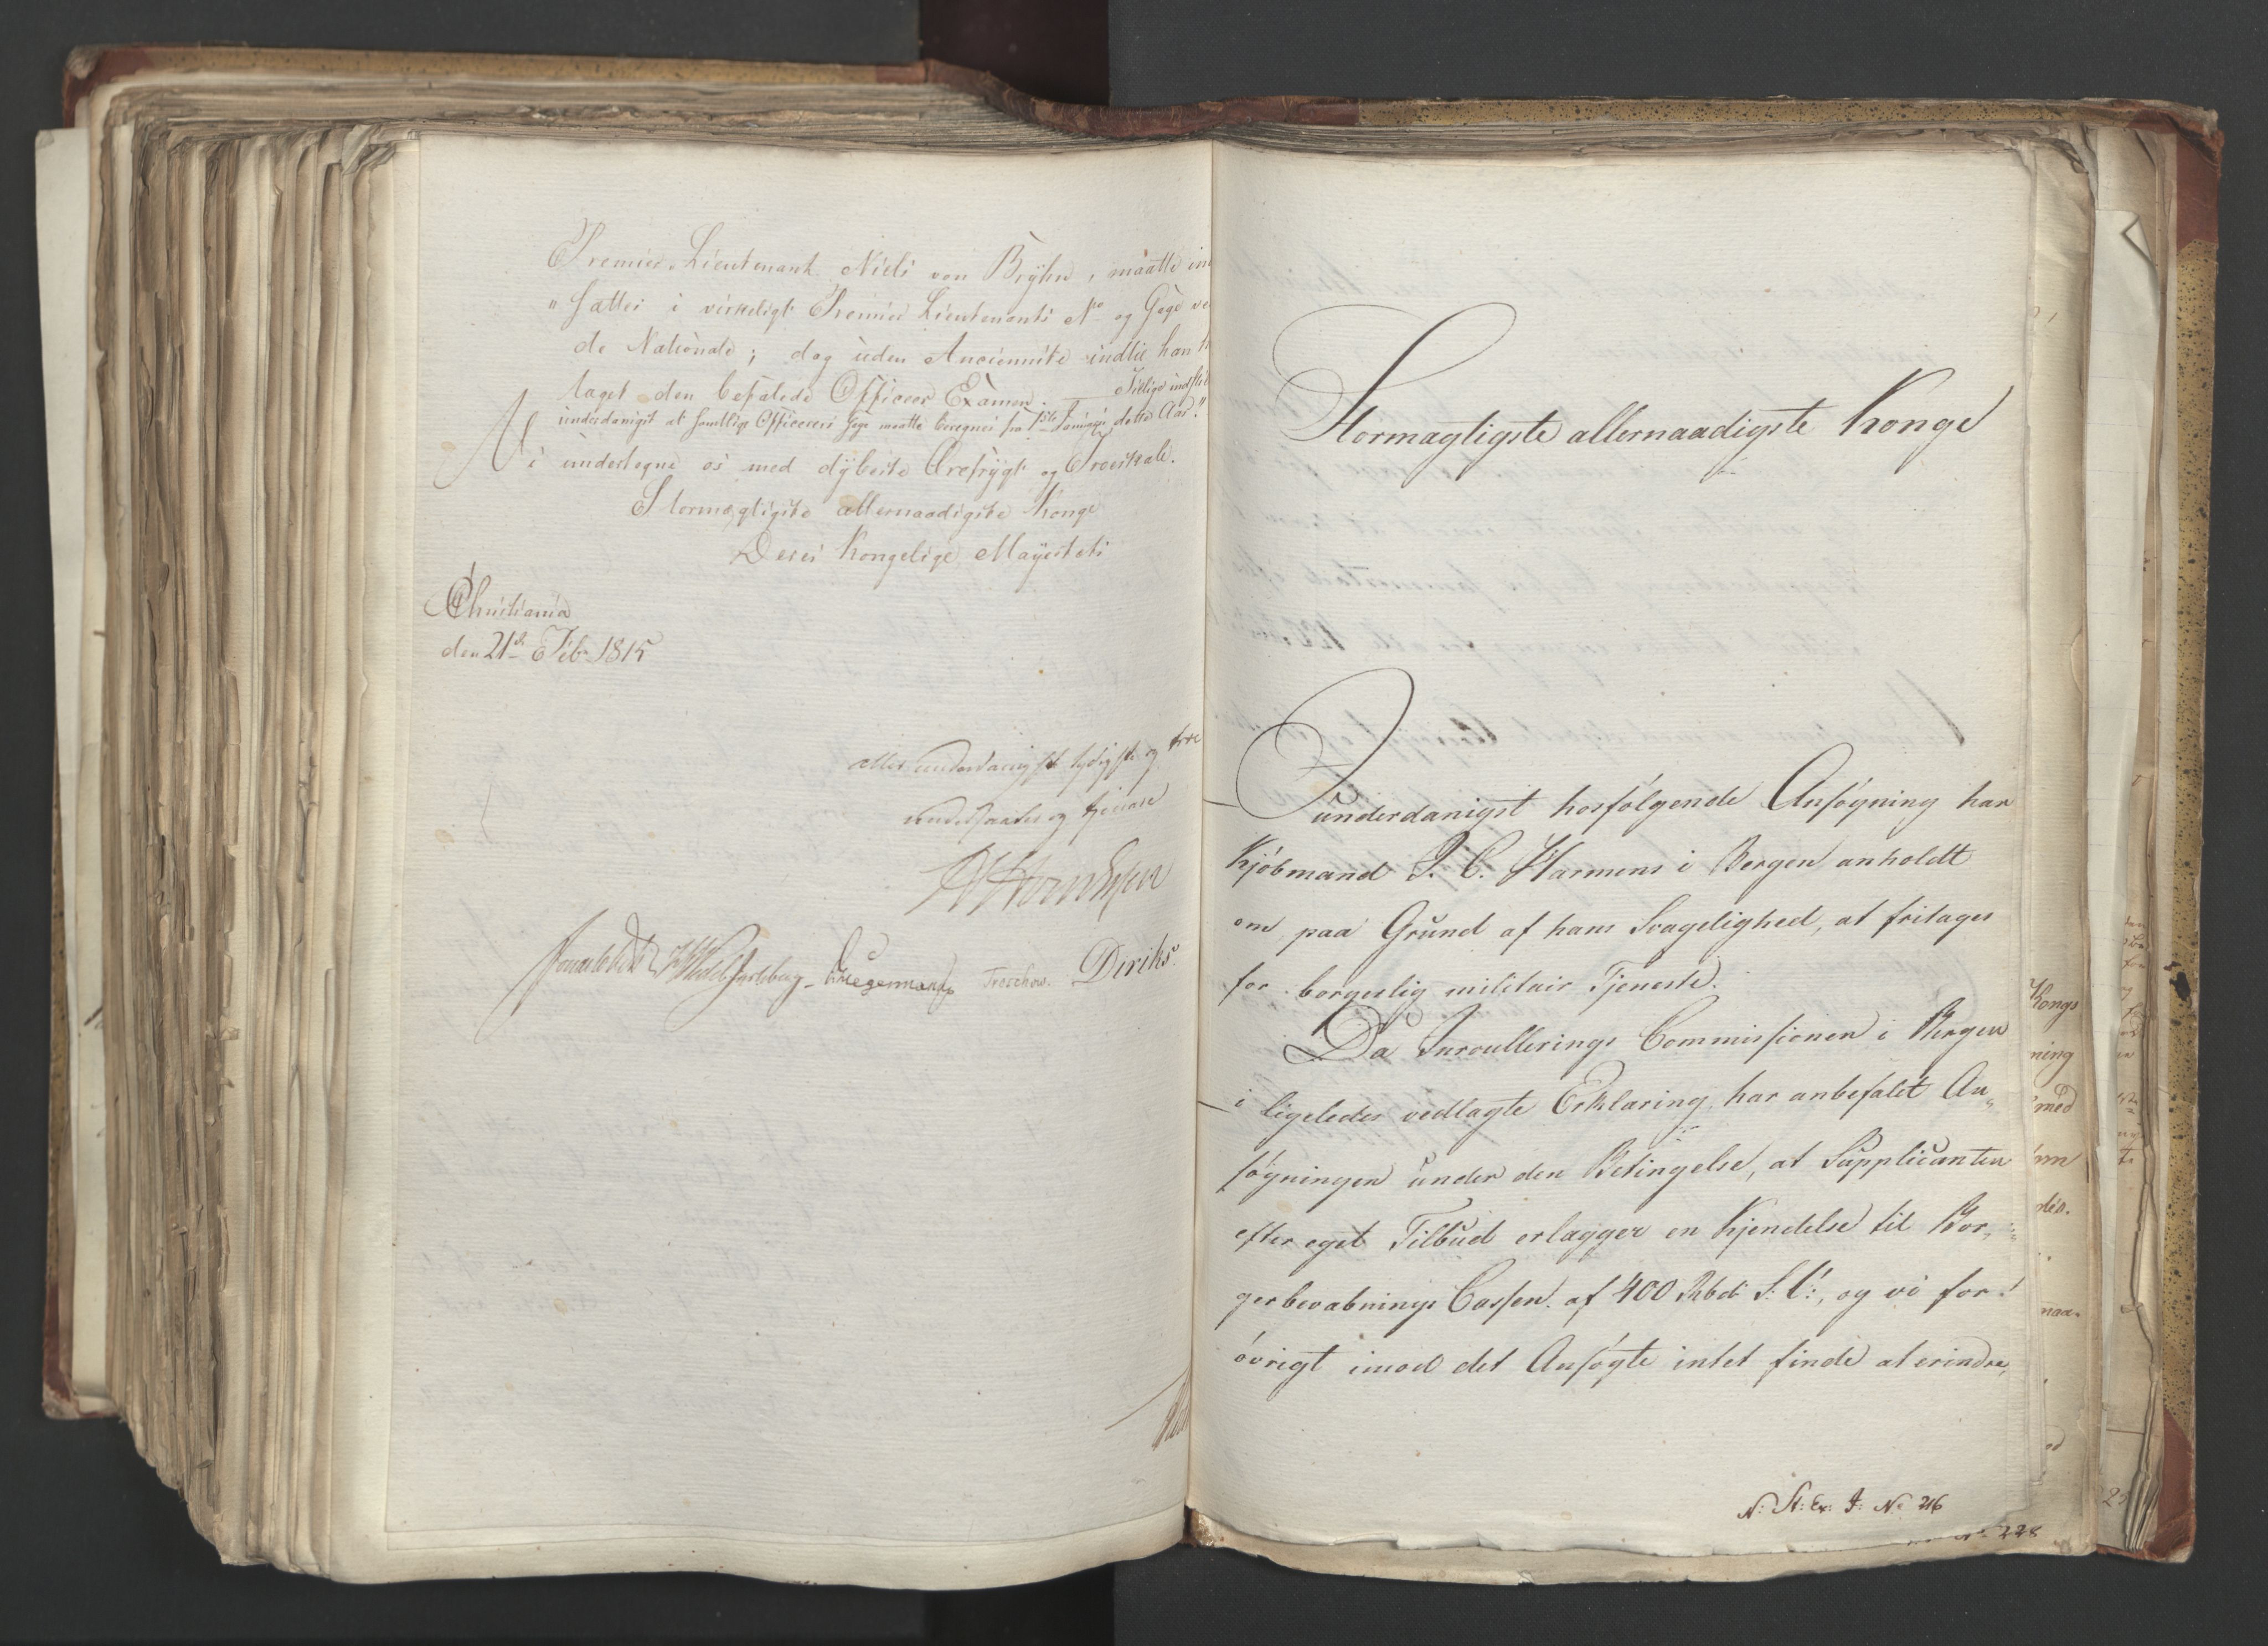 Premier-Lieutenant Niels von Bryhn, maatte ind
"sættes i virkeligt Premier Lieutenants No og Gage ve
de Nationale; dog uden Anciennite indtil han h
taget den befalede Officeer Examen. Tillige indstil
underdanigst at samtlige Officerers Gage maatte beregnes fra 1ste Januari dette Aar."
Vi undertegne os med dybeste Ærefrygt og Troeskab.
Stormægtigste allernaadigste Konge
Deres Kongelige Mayestets
Christiania
den 21de Feb. 1815
allerunderdanigste lydigste og troe
undersaatter og tjenere
Sommerhielm HWedel Jarlsberg Kriegermann Treschow. Diriks.
Stormægtigste allernaadigste Konge
I underdanigst hosfølgende Ansøgning har
Kjøbmand J. C. Harmens i Bergen anholdt
om paa Grund af hans Svagelighed, at fritages
for borgerlig militair Tjeneste.
Da Inroullerings Commissionen i Bergen
i ligeledes vedlagte Erklæring har anbefalet An„
søgningen under den Betingelse, at Supplicanten
efter eget Tilbud erlægger en Kjendelse til Bor„
gerbevæbnings Cassen af 400 Rbd S: V:, og vi for¬
øvrigt imod det Ansøgte intet finde at erindre,
N: St: Ex: I: No 216
No 228
Kongs
ning
med
om
des.
naa-